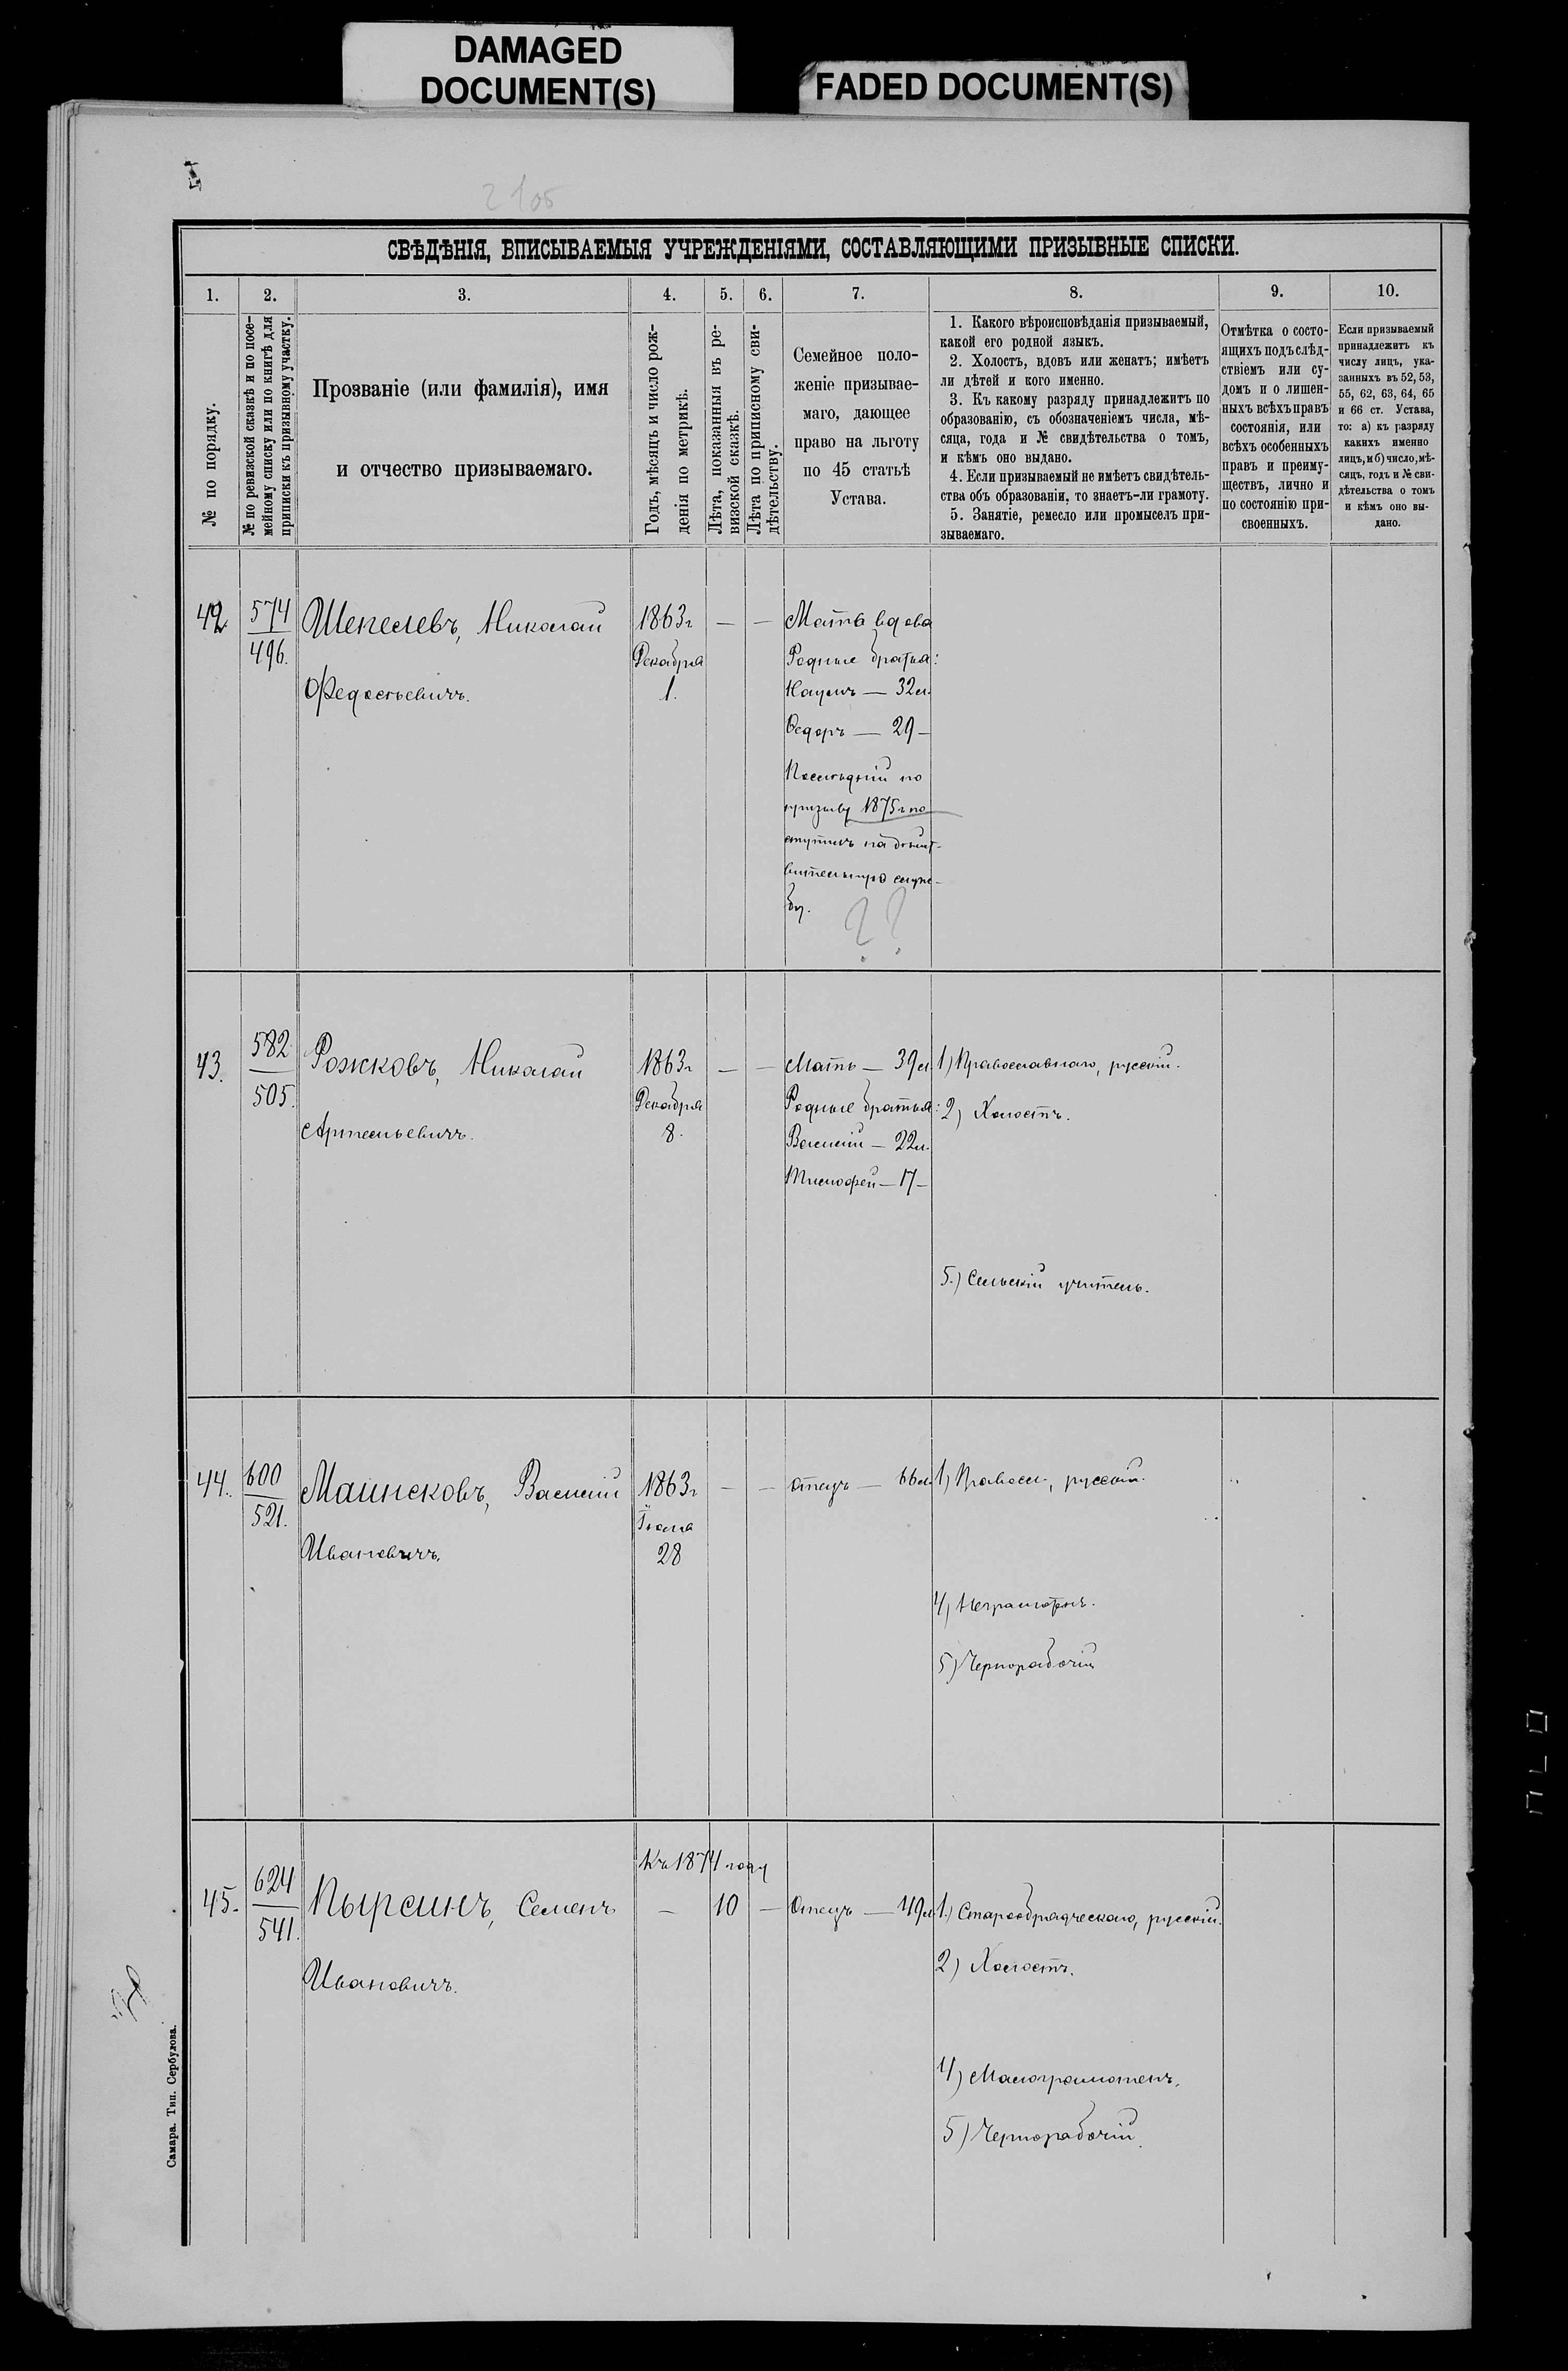 DAMAGED
DOCUMENT(S)
FADED DOCUMENT(S)
СВѢДѢНІЯ, ВПИСЫВАЕМЫЯ УЧРЕЖДЕНІЯМИ, СОСТАВЛЯЮЩИМИ ПРИЗЫВНЫЕ СПИСКИ.
1.
2.
3.
4.
5.
6.
7.
8.
9.
10.
№ по порядку.
№ по ревизской сказкѣ и по посе-
мейному списку или по книгѣ для
приписки къ призывному участку.
Прозваніе (или фамилія), имя
и отчество призываемаго.
Годъ, мѣсяцъ и число рож-
денія по метрикѣ.
Лѣта, показанныя въ ре-
визской сказкѣ.
Лѣта по приписному сви-
дѣтельству.
Семейное поло-
женіе призывае-
маго, дающее
право на льготу
по 45 статьѣ
Устава.
1. Какого вѣроисповѣданія призываемый,
какой его родной языкъ.
2. Холостъ, вдовъ или женатъ; имѣетъ
ли дѣтей и кого именно.
3. Къ какому разряду принадлежитъ по
образованію, съ обозначеніемъ числа, мѣ-
сяца, года и № свидѣтельства о томъ,
и кѣмъ оно выдано.
4. Если призываемый не имѣетъ свидѣтель-
ства объ образованіи, то знаетъ-ли грамоту.
5. Занятіе, ремесло или промыселъ при-
зываемаго.
Отмѣтка о состо-
ящихъ подъ слѣд-
ствіемъ или су-
домъ и о лишен-
ныхъ всѣхъ правъ
состоянія, или
всѣхъ особенныхъ
правъ и преиму-
ществъ, лично и
по состоянію при-
своенныхъ.
Если призываемый
принадлежитъ къ
числу лицъ, ука-
занныхъ въ 52, 53,
55, 62, 63, 64, 65
и 66 ст. Устава,
то: а) къ разряду
какихъ именно
лицъ, и б) число, мѣ-
сяцъ, годъ и № сви-
дѣтельства о томъ
и кѣмъ оно вы-
дано.
42
574
496.
Шепелевъ, Николай
Ѳедосѣевичъ.
1863г
Декабря
1.
— —
Мать вдова
Родные братья:
Наумъ — 32л.
Ѳедоръ — 29 —
Послѣдній по
призыву 1875г по
ступилъ на дѣйст-
вительную служ-
бу.
??
43.
582
505.
Рожковъ, Николай
Артемьевичъ.
1863г
Декабря
8.
— —
Мать — 39л
Родные братья:
Василій — 22л.
Тимофей — 17 —
1) Православнаго, русскій.
2) Холостъ.
5.) Сельскій учитель.
44.
600
521.
Ивановичъ.
Василій
1863г
Іюля
28
— —
отецъ — 66л
1) Правосл., русскій.
4) Неграмотенъ.
5) Чернорабочій
45.
624
541.
Пырсинъ, Семенъ
Ивановичъ.
Къ 1874 году
— 10 —
Отецъ — 49л
1.) Старообрядческаго, русскій.
2) Холостъ.
4) Малограмотенъ.
5) Чернорабочій.
Самара. Тип. Сербулова.